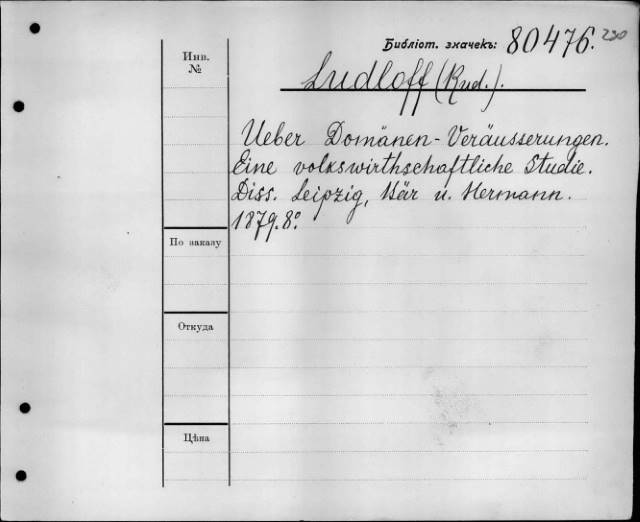 Библіот. значекъ: 80476. 230
Инв.
№
Ludloff (Rud.).
Ueber Domänen-Veräusserungen.
Eine volkswirthschaftliche Studie.
Diss. Leipzig, Bär u. Hermann.
1879. 8º
По заказу
Откуда
Цѣна